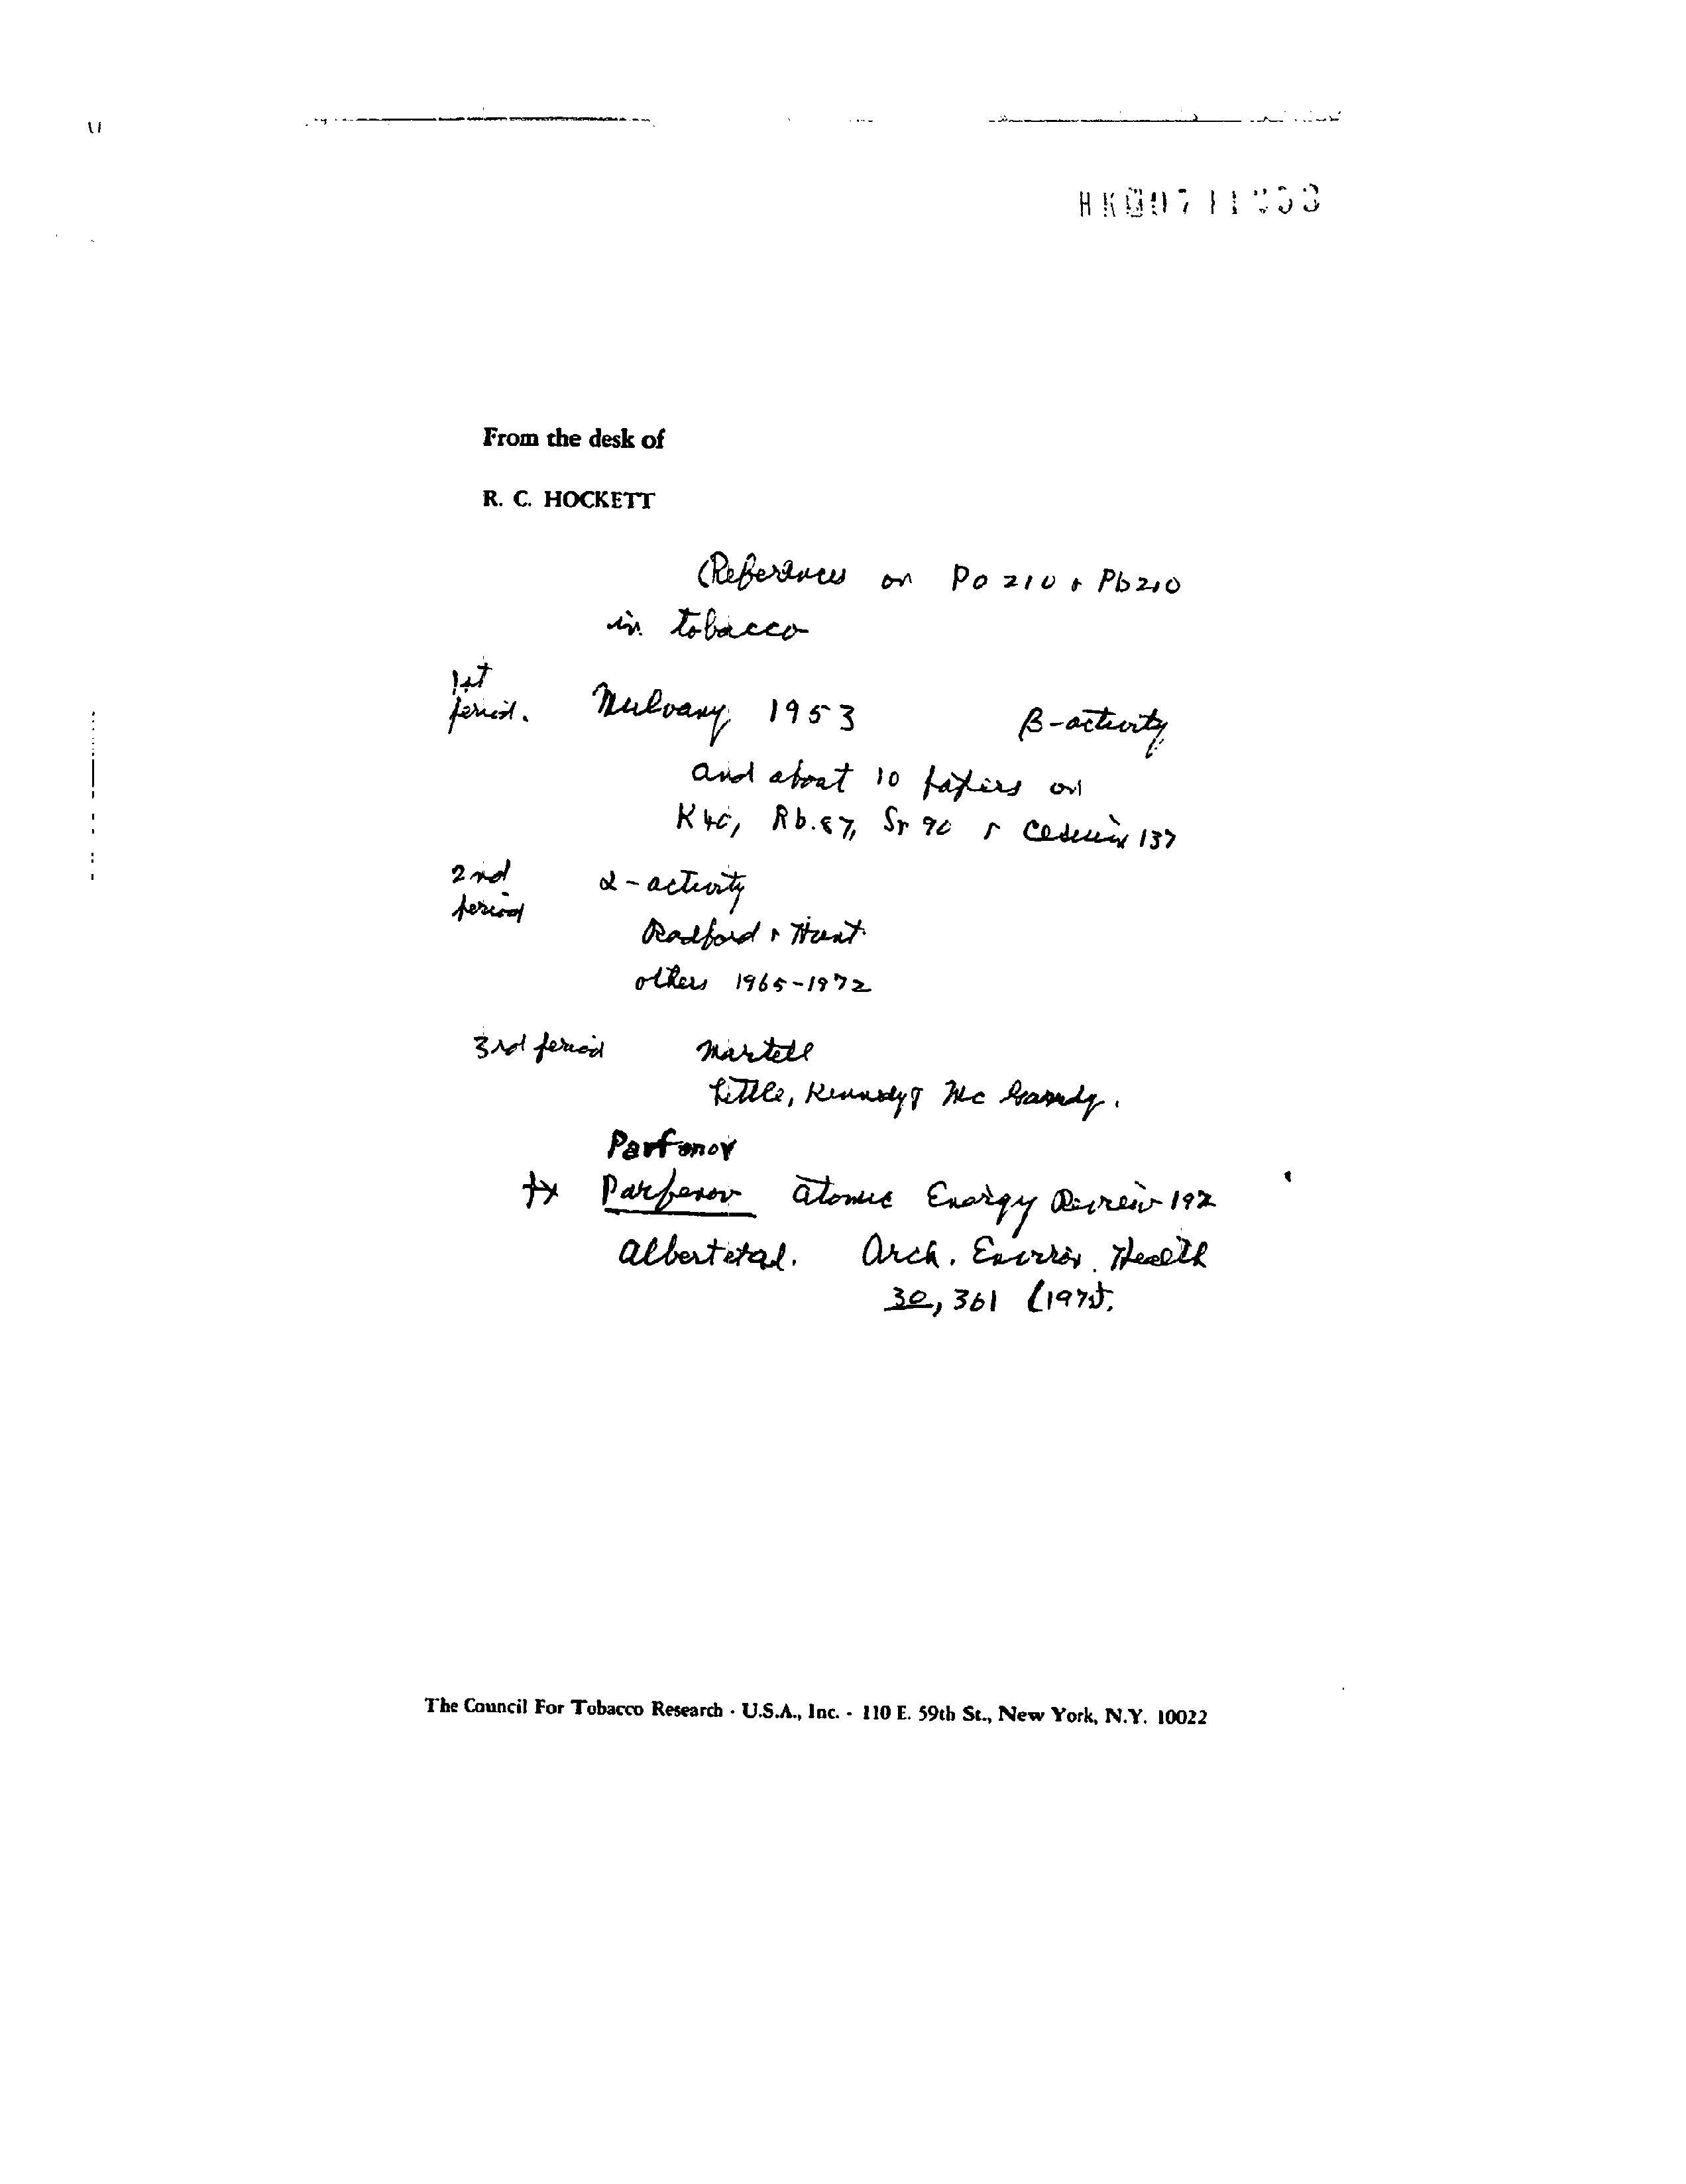 From the desk of
R. C. HOCKETT
(References on Po 210 & Pb 210
in tobacco
1st
period. Mulvany 1953 β-activity
and about 10 papers on
K 40, Rb. 87, Sr 90 & Cesium 137
2nd
period α-activity
Radford & Hunt
others 1965-1972
3rd period Martell
Little, Kennedy & McGandy.
Parfenov
Parfenov Atomic Energy Review 197
Albert et al. Arch. Environ. Health
30, 361 (1975).
The Council For Tobacco Research - U.S.A., Inc. - 110 E. 59th St., New York, N.Y. 10022